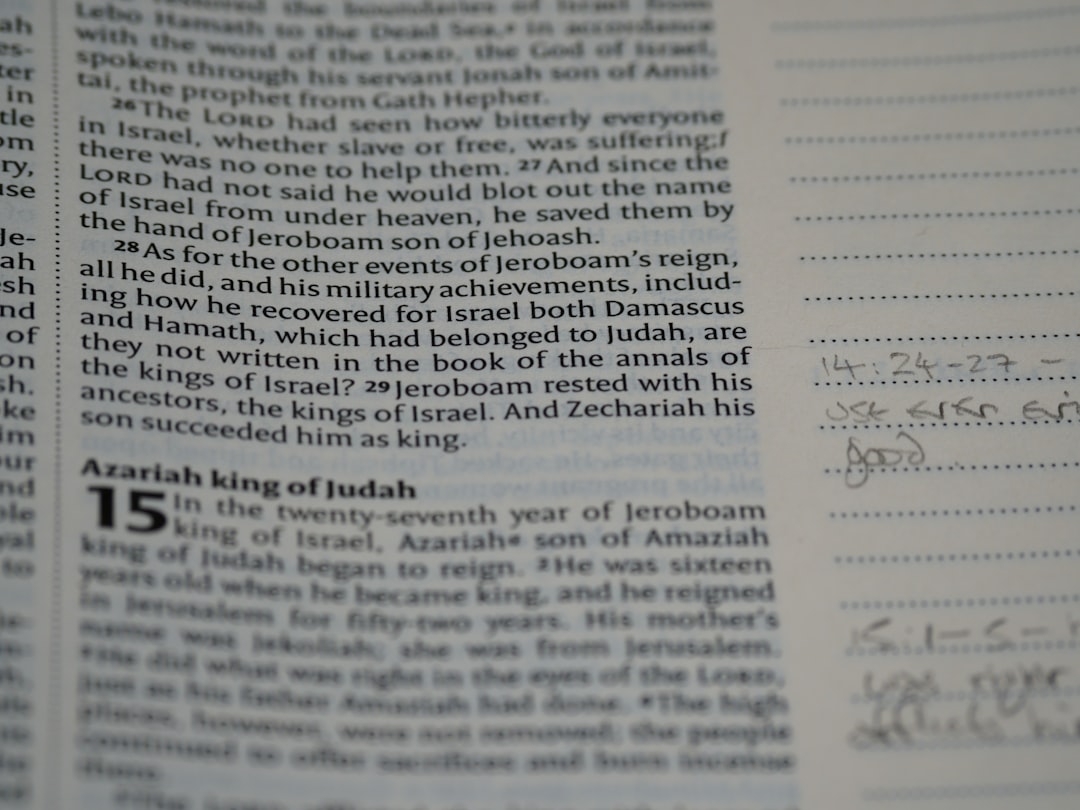 ah
es-
ter
in
tle
om
ry,
use
Je-
ah
sh
nd
of
on
sh.
ke
im
our
nd
ple
val
to
Lebo Hamath to the Dead Sea, in accordance
with the word of the LORD, the God of Israel,
spoken through his servant Jonah son of Amit-
tai, the prophet from Gath Hepher.
26 The LORD had seen how bitterly everyone
in Israel, whether slave or free, was suffering;f
there was no one to help them. 27 And since the
LORD had not said he would blot out the name
of Israel from under heaven, he saved them by
the hand of Jeroboam son of Jehoash.
28 As for the other events of Jeroboam's reign,
all he did, and his military achievements, includ-
ing how he recovered for Israel both Damascus
and Hamath, which had belonged to Judah, are
they not written in the book of the annals of
the kings of Israel? 29 Jeroboam rested with his
ancestors, the kings of Israel. And Zechariah his
son succeeded him as king.
Azariah king of Judah
15 In the twenty-seventh year of Jeroboam
king of Israel, Azariah son of Amaziah
king of Judah began to reign. 2 He was sixteen
years old when he became king, and he reigned
in Jerusalem for fifty-two years. His mother's
name was Jekoliah; she was from Jerusalem.
He did what was right in the eyes of the LORD,
just as his father Amaziah had done. The high
places, however, were not removed; the people
continued to offer sacrifices and burn incense
14:24-27 -
use even
good
15:1-5-
was right
affects